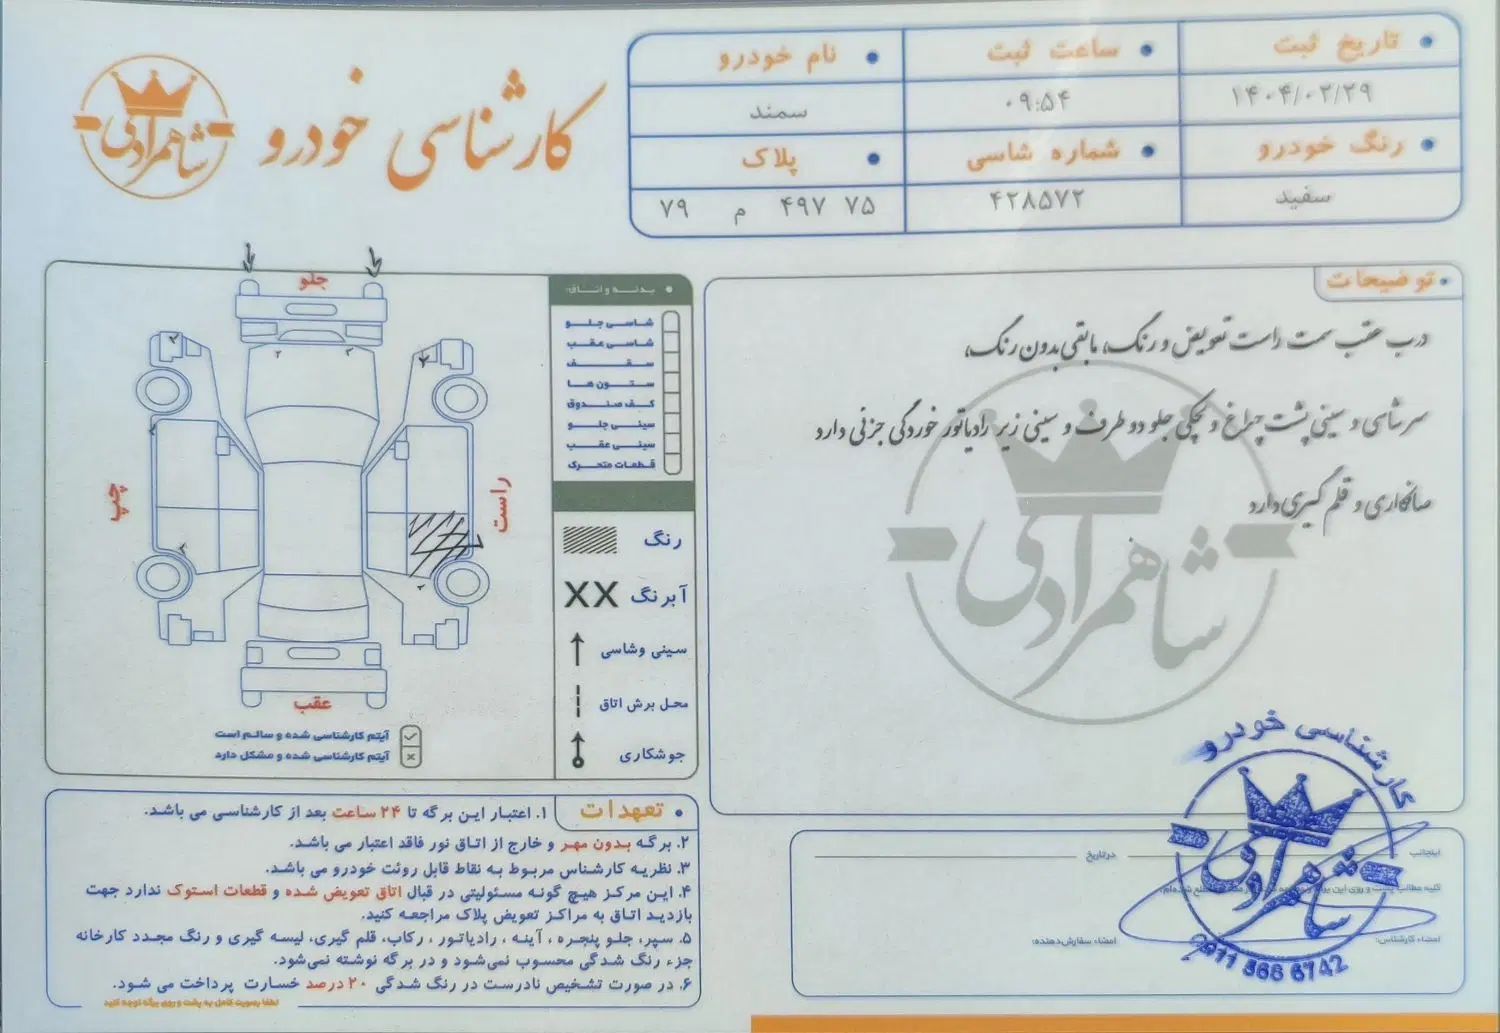 کارشناسی خودرو
شاهمرادی
تاریخ ثبت
ساعت ثبت
نام خودرو
۱۴۰۴/۰۲/۲۹
۰۹:۵۴
سمند
رنگ خودرو
شماره شاسی
پلاک
سفید
۴۲۸۵۷۲
۷۵ ۴۹۷ م ۷۹
توضیحات
درب عقب سمت راست تعویض و رنگ، مابقی بدون رنگ،
سرشاسی و سینی پشت چراغ و لچکی جلو دو طرف و سینی زیر رادیاتور خوردگی جزئی دارد
صافکاری و قلم گیری دارد
شاهمرادی
بدنه و اتاق:
شاسی جلو
شاسی عقب
سقف
ستون ها
کف صندوق
سینی جلو
سینی عقب
قطعات متحرک
رنگ
آبرنگ XX
سینی وشاسی
محل برش اتاق
جوشکاری
جلو
چپ
راست
عقب
آیتم کارشناسی شده و سالم است
آیتم کارشناسی شده و مشکل دارد
تعهدات
۱. اعتبار این برگه تا ۲۴ ساعت بعد از کارشناسی می باشد.
۲. برگه بدون مهر و خارج از اتاق نور فاقد اعتبار می باشد.
۳. نظریه کارشناس مربوط به نقاط قابل روئت خودرو می باشد.
۴. این مرکز هیچ گونه مسئولیتی در قبال اتاق تعویض شده و قطعات استوک ندارد جهت
بازدید اتاق به مراکز تعویض پلاک مراجعه کنید.
۵. سپر، جلو پنجره ، آینه ، رادیاتور ، رکاب، قلم گیری، لیسه گیری و رنگ مجدد کارخانه
جزء رنگ شدگی محسوب نمی‌شود و در برگه نوشته نمی‌شود.
۶. در صورت تشخیص نادرست در رنگ شدگی ۲۰ درصد خسارت پرداخت می شود.
لطفا بصورت کامل به پشت و روی برگه توجه کنید
اینجانب
درتاریخ
کلیه مطالب پشت و روی این برگه
امضاء کارشناس:
امضاء سفارش‌دهنده:
کارشناسی خودرو
شاهمرادی
0911 368 6742